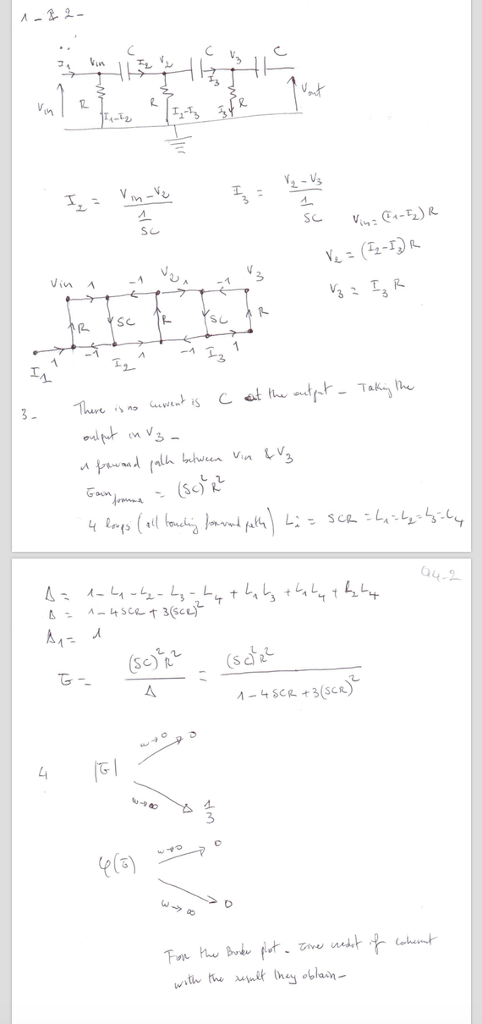 1 - & 2 -
I1 Vin C I2 V2 C V3 C
I3
Vin R I1-I2 R I2-I3 I3 R Vout
I2 = Vin - V2 / 1/SC
I3 = V2 - V3 / 1/SC
Vin = (I1-I2) R
V2 = (I2-I3) R
V3 = I3 R
Vin 1 -1 V2 1 -1 V3
R SC R SC R
I1 1 -1 I2 1 -1 I3 1
3 - There is no current is C at the output - Taking the
output in V3 -
1 forward path between Vin & V3
Gain = (SC)² R²
4 loops (all touching forward path) Li = SCR = L1 = L2 = L3 = L4
Q4-2
Δ = 1 - L1 - L2 - L3 - L4 + L1L3 + L1L4 + L2L4
Δ = 1 - 4SCR + 3(SCR)²
Δ1 = 1
G = (SC)²R² / Δ = (SC)²R² / 1 - 4SCR + 3(SCR)²
4 |G| ω→0 0
ω→∞ 1/3
φ(G) ω→0 0
ω→∞ 0
For the Bode plot - Give credit if coherent
with the result they obtain -